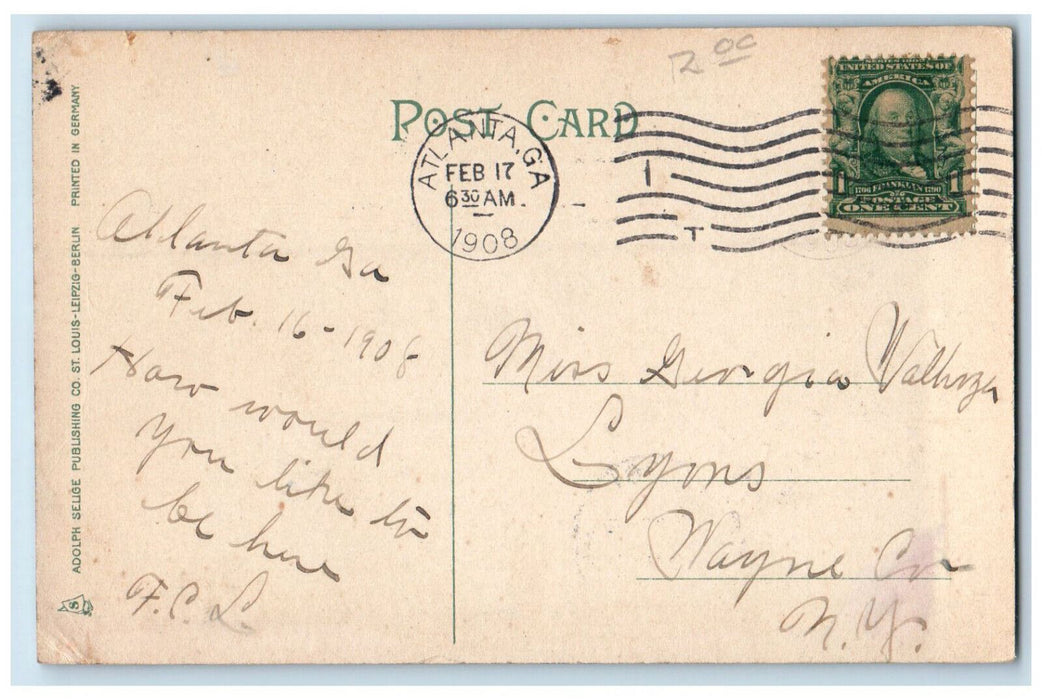 2 00
POST CARD
UNITED STATES OF
AMERICA
1 1706 FRANKLIN 1790 1
POSTAGE
ONE CENT
ATLANTA, GA.
FEB 17
6 30 AM
1908
1
T
ADOLPH SELIGE PUBLISHING CO. ST. LOUIS-LEIPZIG-BERLIN PRINTED IN GERMANY
S
Atlanta Ga
Feb. 16-1908
How would
you like to
be here
F.C. L.
Miss Georgia
Lyons
Wayne Co
N.Y.